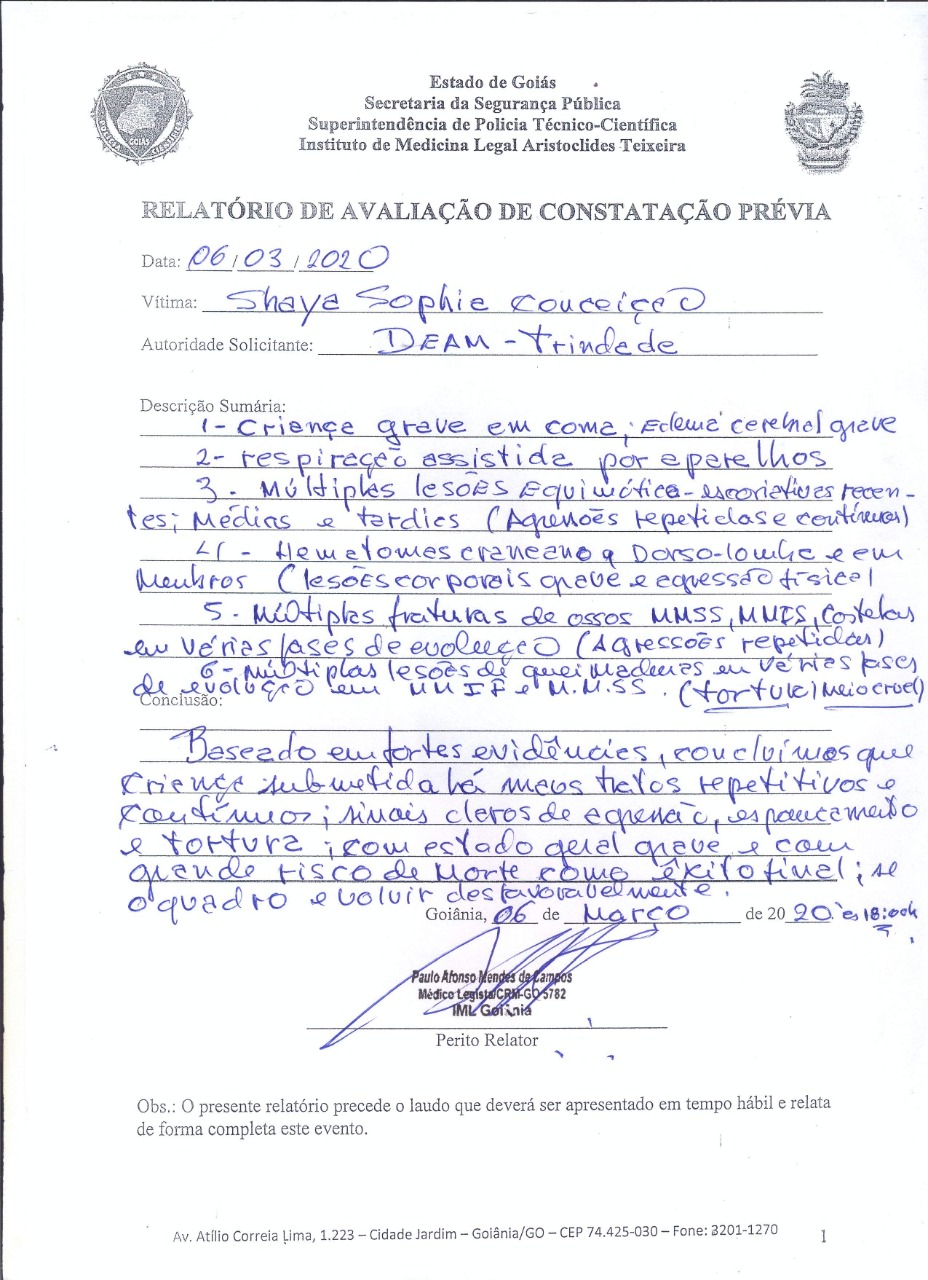 Estado de Goiás
Secretaria da Segurança Pública
Superintendência de Policia Técnico-Científica
Instituto de Medicina Legal Aristoclides Teixeira
GOIÁS
RELATÓRIO DE AVALIAÇÃO DE CONSTATAÇÃO PRÉVIA
Data: 06/03/2020
Vítima: Shaya Sophie Conceição
Autoridade Solicitante: DEAM - Trindade
Descrição Sumária:
1- Criança grave em coma; Edema cerebral grave
2- respiração assistida por aparelhos
3. Múltiplas lesões Equimótica-escoriativas recen-
tes; Médias e tardias (Agressões repetidas e contínuas)
4 - Hematomas craneano Dorso-lombar e em
Membros (lesões corporais grave e agressão física)
5- Múltiplas fraturas de ossos MMSS, MMIS, Costelas
em várias fases de evolução (Agressões repetidas)
6- Múltiplas lesões de queimaduras em várias fases
de evolução em e M.M.SS. (tortura) meio cruel)
Conclusão:
Baseado em fortes evidências, concluímos que
criança submetida há maus tratos repetitivos e
contínuos; sinais claros de agressão, espancamento
e tortura; com estado geral grave e com
grande risco de morte como êxito final; se
o quadro evoluir desfavoravelmente.
Goiânia, 06 de Março de 2020. às 18:00h
Paulo Afonso Mendes de Campos
Médico Legista/CRM-GO 5782
IML Goiânia
Perito Relator
Obs.: O presente relatório precede o laudo que deverá ser apresentado em tempo hábil e relata
de forma completa este evento.
Av. Atílio Correia Lima, 1.223 – Cidade Jardim – Goiânia/GO – CEP 74.425-030 – Fone: 3201-1270
1